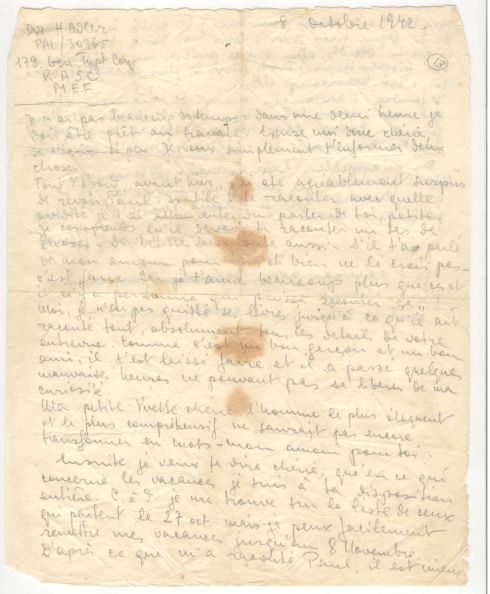 Dvr H Adler
PAL/30965
179. Gen. Trpt Coy
R.A.S.C.
M.E.F
8 octobre 1942.
(13)
Je n'ai pas beaucoup de temps: dans une demi heure je
dois être prêt au travail. Excuse moi donc chérie,
si peu. Je veux simplement t'informer deux
choses.
Tout d'abord, avant hier, j'ai été agréablement surpris
de revoir Paul; inutile de te raconter avec quelle
avidité je l'ai entendu parler de toi, petite;
je comprends qu'il devait te raconter un tas de
choses - de bêtises sans doute aussi. S'il t'a parlé
de mon amour pour et bien ne le crois pas -
c'est faux. Car je t'aime beaucoup plus que ça et
il n'y a personne qui puisse raconter ça..
Moi, je n'ai pas quitté ses lèvres jusqu'à ce qu'il ait
raconté tout, absolument tous les détails de votre
entrevue. Comme c'est un bon garçon et un bon
ami, il s'est laissé faire et il a passé quelques
mauvaises heures ne pouvant pas se libérer de ma
curiosité.
Ma petite Yvette chérie l'homme le plus éloquent
et le plus compréhensif ne saurait pas encore
transformer en mots - mon amour pour toi.
Ensuite je veux te dire chérie, que en ce qui
concerne les vacances je suis à ta disposition
entière. C à d je me trouve sur la liste de ceux
qui partent le 27 oct. mais je peux facilement
remettre mes vacances jusqu'au 8 Novembre.
D'après ce que m'a raconté Paul, il est mieux